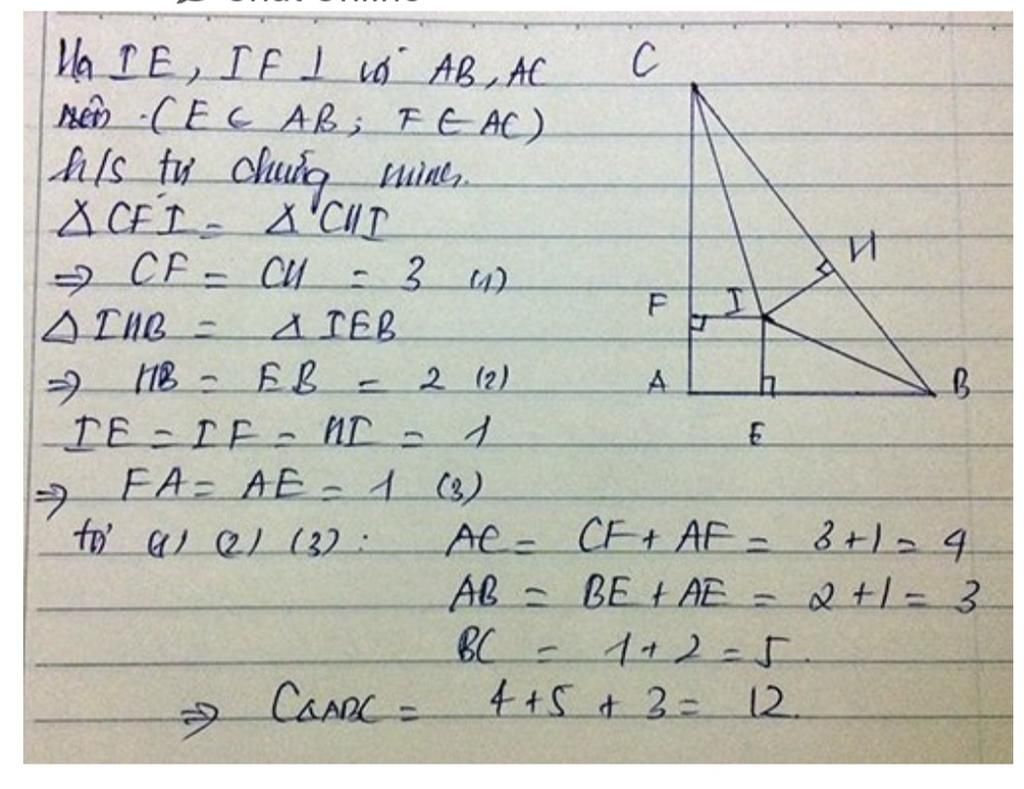 Hạ IE, IF ⊥ với AB, AC
nên (E ∈ AB; F ∈ AC)
h/s tự chứng minh.
Δ CFI = Δ CHI
⇒ CF = CH = 3 (1)
Δ IHB = Δ IEB
⇒ HB = EB = 2 (2)
IE = IF = HI = 1
⇒ FA = AE = 1 (3)
từ (1) (2) (3): AC = CF + AF = 3+1 = 4
AB = BE + AE = 2+1 = 3
BC = 1+2 = 5.
⇒ CΔABC = 4+5+3 = 12.
C
H
F I
A B
E